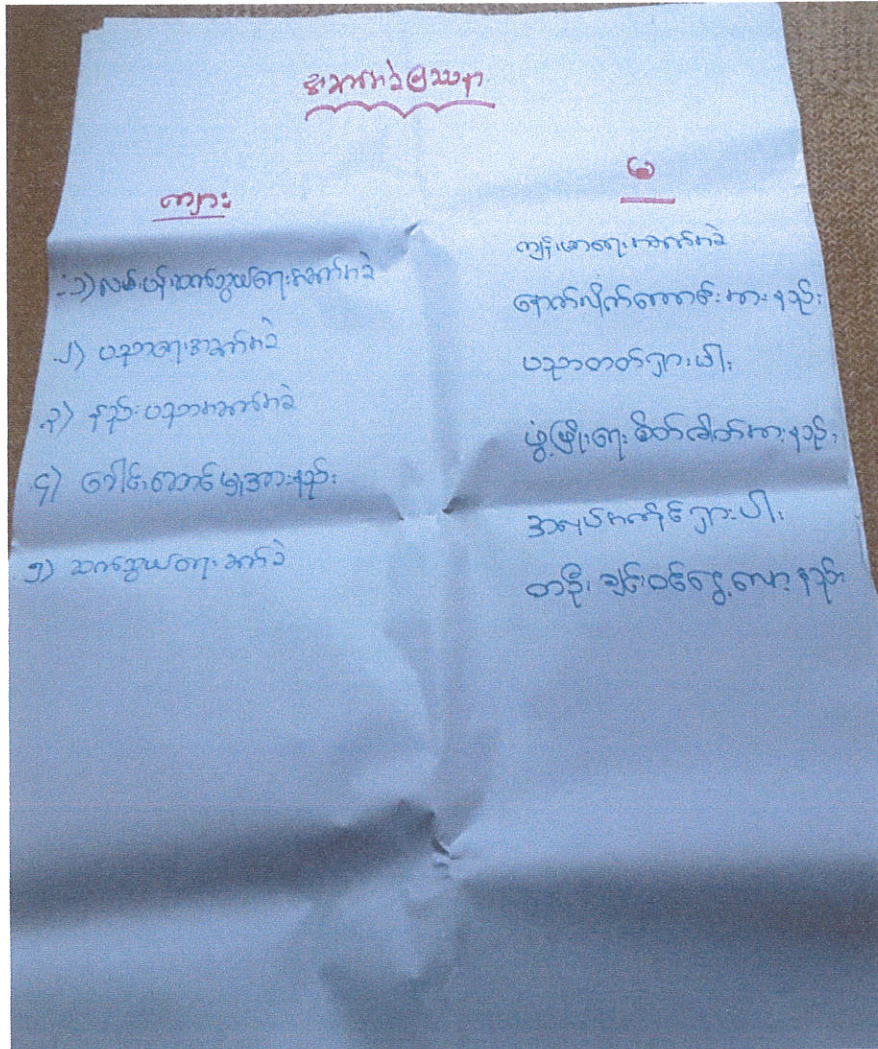 အခက်အခဲပြဿနာ
ကျား
၁) လမ်းပန်းဆက်သွယ်ရေးအခက်အခဲ
၂) ပညာရေးအခက်အခဲ
၃) နည်းပညာအခက်အခဲ
၄) ခေါင်းဆောင်မှုအားနည်း
၅) ဆက်သွယ်ရေးအခက်ခဲ
မ
ကျန်းမာရေးအခက်အခဲ
နောက်လိုက်ကောင်းအားနည်း
ပညာတတ်ရှားပါး
ဖွံ့ဖြိုးရေးစိတ်ဓါတ်အားနည်း
အလုပ်အကိုင်ရှားပါး
တဦးချင်းဝင်ငွေလျော့နည်း